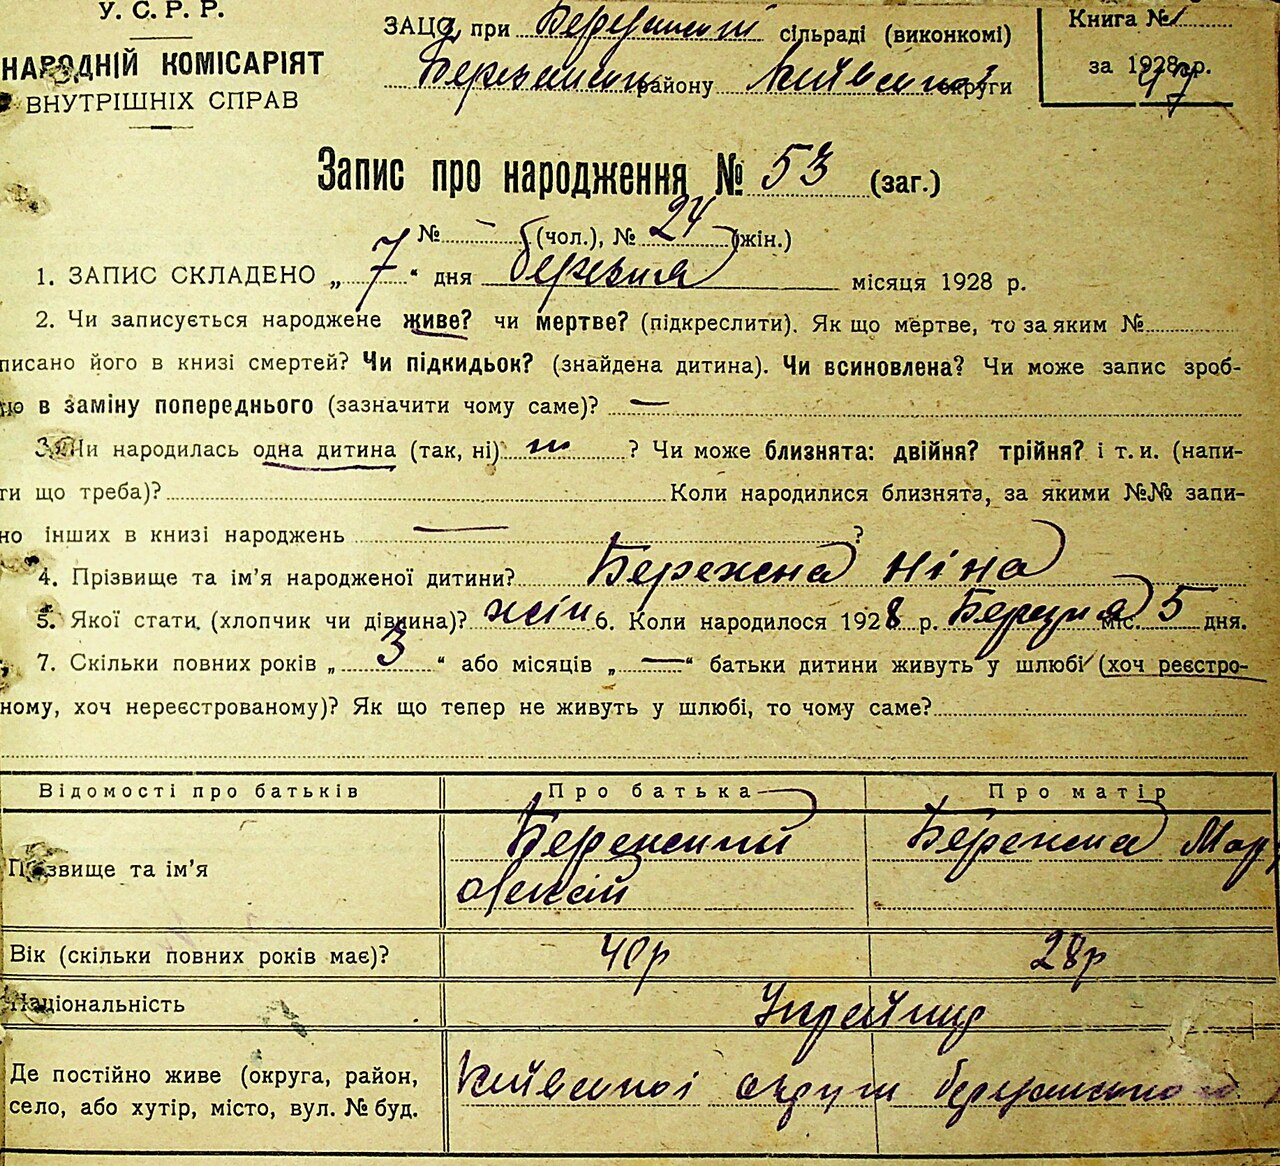 У. С. Р. Р.
НАРОДНІЙ КОМІСАРІЯТ
ВНУТРІШНІХ СПРАВ
ЗАЦС при сільраді (виконкомі)
району Київської округи
Книга № 1
за 1928 р.
Запис про народження № 53 (заг.)
№ - (чол.), № 24 (жін.)
1. ЗАПИС СКЛАДЕНО „ 7 “ дня березня місяця 1928 р.
2. Чи записується народжене живе? чи мертве? (підкреслити). Як що мертве, то за яким №
писано його в книзі смертей? Чи підкидьок? (знайдена дитина). Чи всиновлена? Чи може запис зроб-
но в заміну попереднього (зазначити чому саме)? —
3. Чи народилась одна дитина (так, ні) ? Чи може близнята: двійня? трійня? і т. и. (напи-
ти що треба)? Коли народилися близнята, за якими №№ запи-
но інших в книзі народжень — ?
4. Прізвище та ім’я народженої дитини? Бережна Ніна
5. Якої стати (хлопчик чи дівчина)? жін 6. Коли народилося 1928 р. Березня міс. 5 дня.
7. Скільки повних років „ 3 “ або місяців „ — “ батьки дитини живуть у шлюбі (хоч реєстро-
ному, хоч нереєстрованому)? Як що тепер не живуть у шлюбі, то чому саме?
Відомості про батьків Про батька Про матір
Прізвище та ім’я Бережний Олексій Бережна
Вік (скільки повних років має)? 40р 28р
Національність
Де постійно живе (округа, район, Київської округи
село, або хутір, місто, вул. № буд.